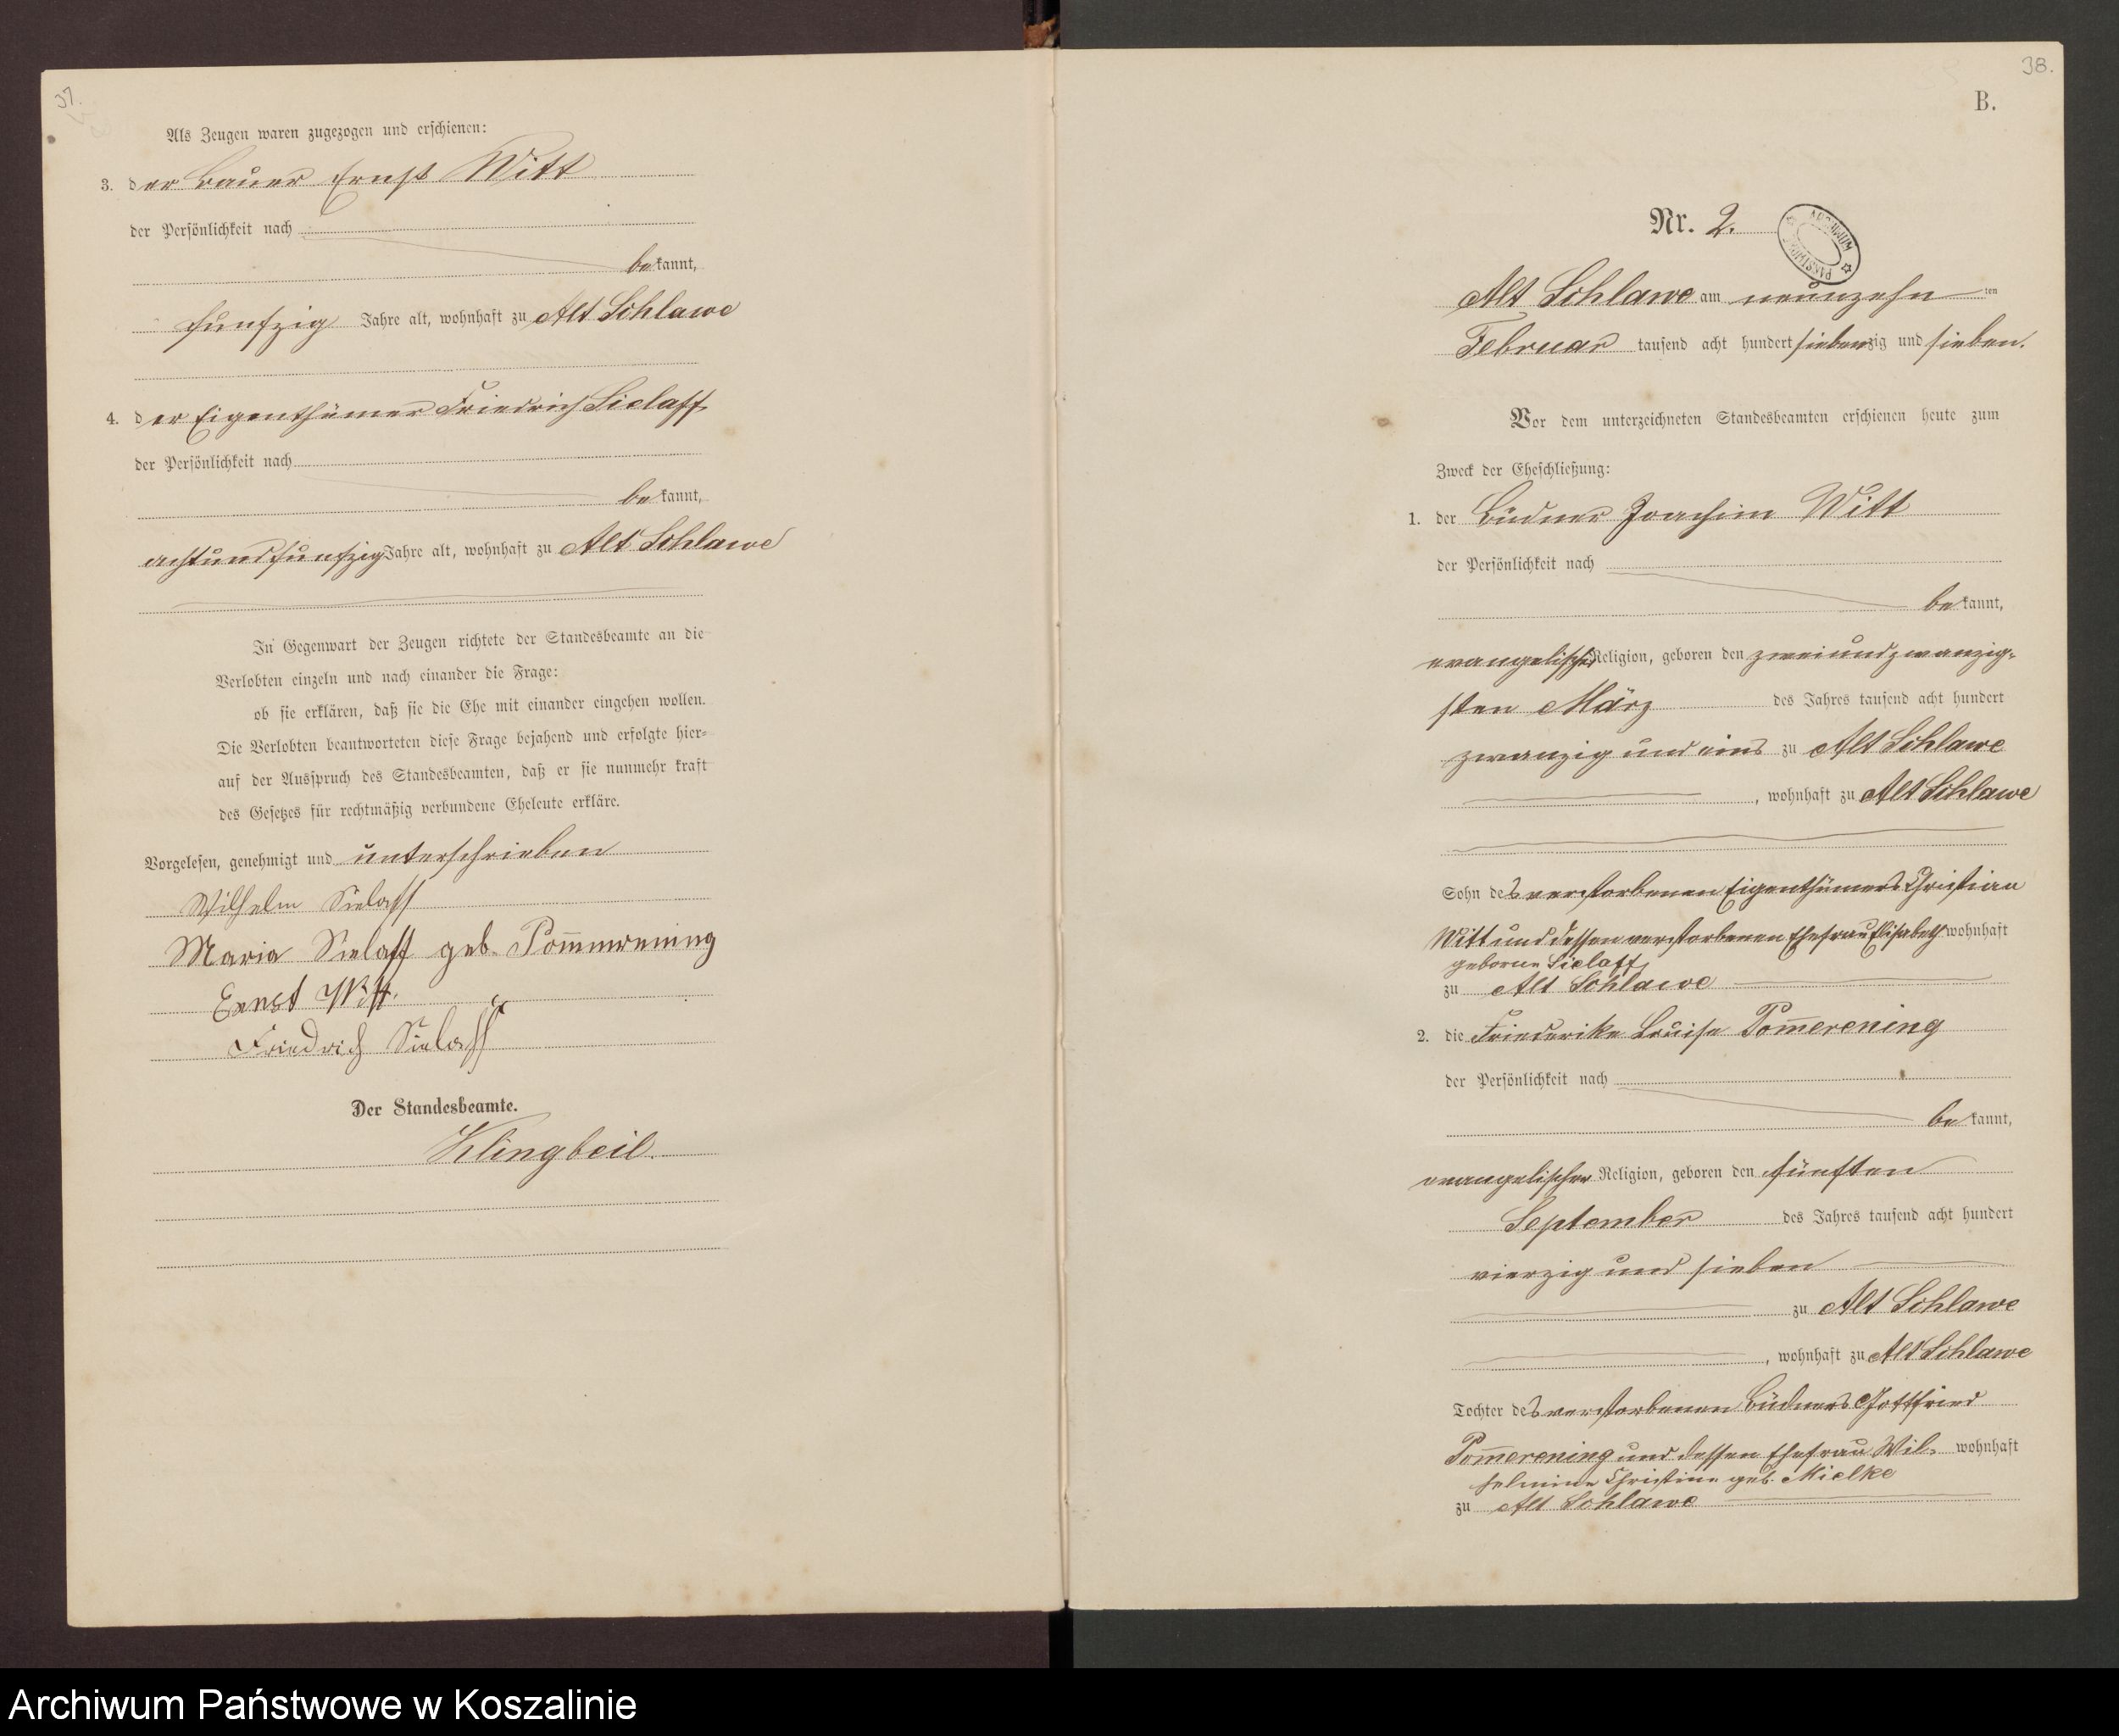 37.
Als Zeugen waren zugezogen und erschienen:
3. der Bauer Ernst Witt
der Persönlichkeit nach
bekannt,
funfzig Jahre alt, wohnhaft zu Alt Schlawe
4. der Eigenthümer Friedrich Sielaff
der Persönlichkeit nach
bekannt,
achtundfunfzig Jahre alt, wohnhaft zu Alt Schlawe
In Gegenwart der Zeugen richtete der Standesbeamte an die
Verlobten einzeln und nach einander die Frage:
ob sie erklären, daß sie die Ehe mit einander eingehen wollen.
Die Verlobten beantworteten diese Frage bejahend und erfolgte hier-
auf der Ausspruch des Standesbeamten, daß er sie nunmehr kraft
des Gesetzes für rechtmäßig verbundene Eheleute erkläre.
Vorgelesen, genehmigt und unterschrieben
Wilhelm Sielaff
Maria Sielaff geb. Pom̅merening
Ernst Witt.
Friedrich Sielaff
Der Standesbeamte.
Klingbeil.
38.
B.
Nr. 2.
ARCHIWUM PAŃSTWOWE
Alt Schlawe am neunzehnten
Februar tausend acht hundert siebenzig und sieben.
Vor dem unterzeichneten Standesbeamten erschienen heute zum
Zweck der Eheschließung:
1. der Büdner Joachim Witt
der Persönlichkeit nach
bekannt,
evangelischer Religion, geboren den zweiundzwanzig-
sten März des Jahres tausend acht hundert
zwanzig und eins zu Alt Schlawe
, wohnhaft zu Alt Schlawe
Sohn des verstorbenen Eigenthümers Christian
Witt und dessen verstorbenen Ehefrau Elisabeth wohnhaft
geborne Sielaff
zu Alt Schlawe
2. die Friederike Louise Pom̅erening
der Persönlichkeit nach
bekannt,
evangelischer Religion, geboren den fünften
September des Jahres tausend acht hundert
vierzig und sieben
zu Alt Schlawe
, wohnhaft zu Alt Schlawe
Tochter des verstorbenen Büdners Gottfried
Pom̅erening und dessen Ehefrau Wil- wohnhaft
helmine Christine geb. Mielke
zu Alt Schlawe
Archiwum Państwowe w Koszalinie